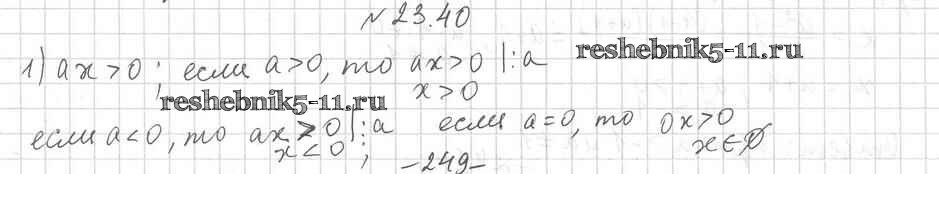 № 23.40
1) ax > 0; если a > 0, то ax > 0 | : a
reshebnik5-11.ru
x > 0
reshebnik5-11.ru
если a < 0, то ax > 0 | : a если a = 0, то 0x > 0
x < 0; x ∈ ∅
– 249 –